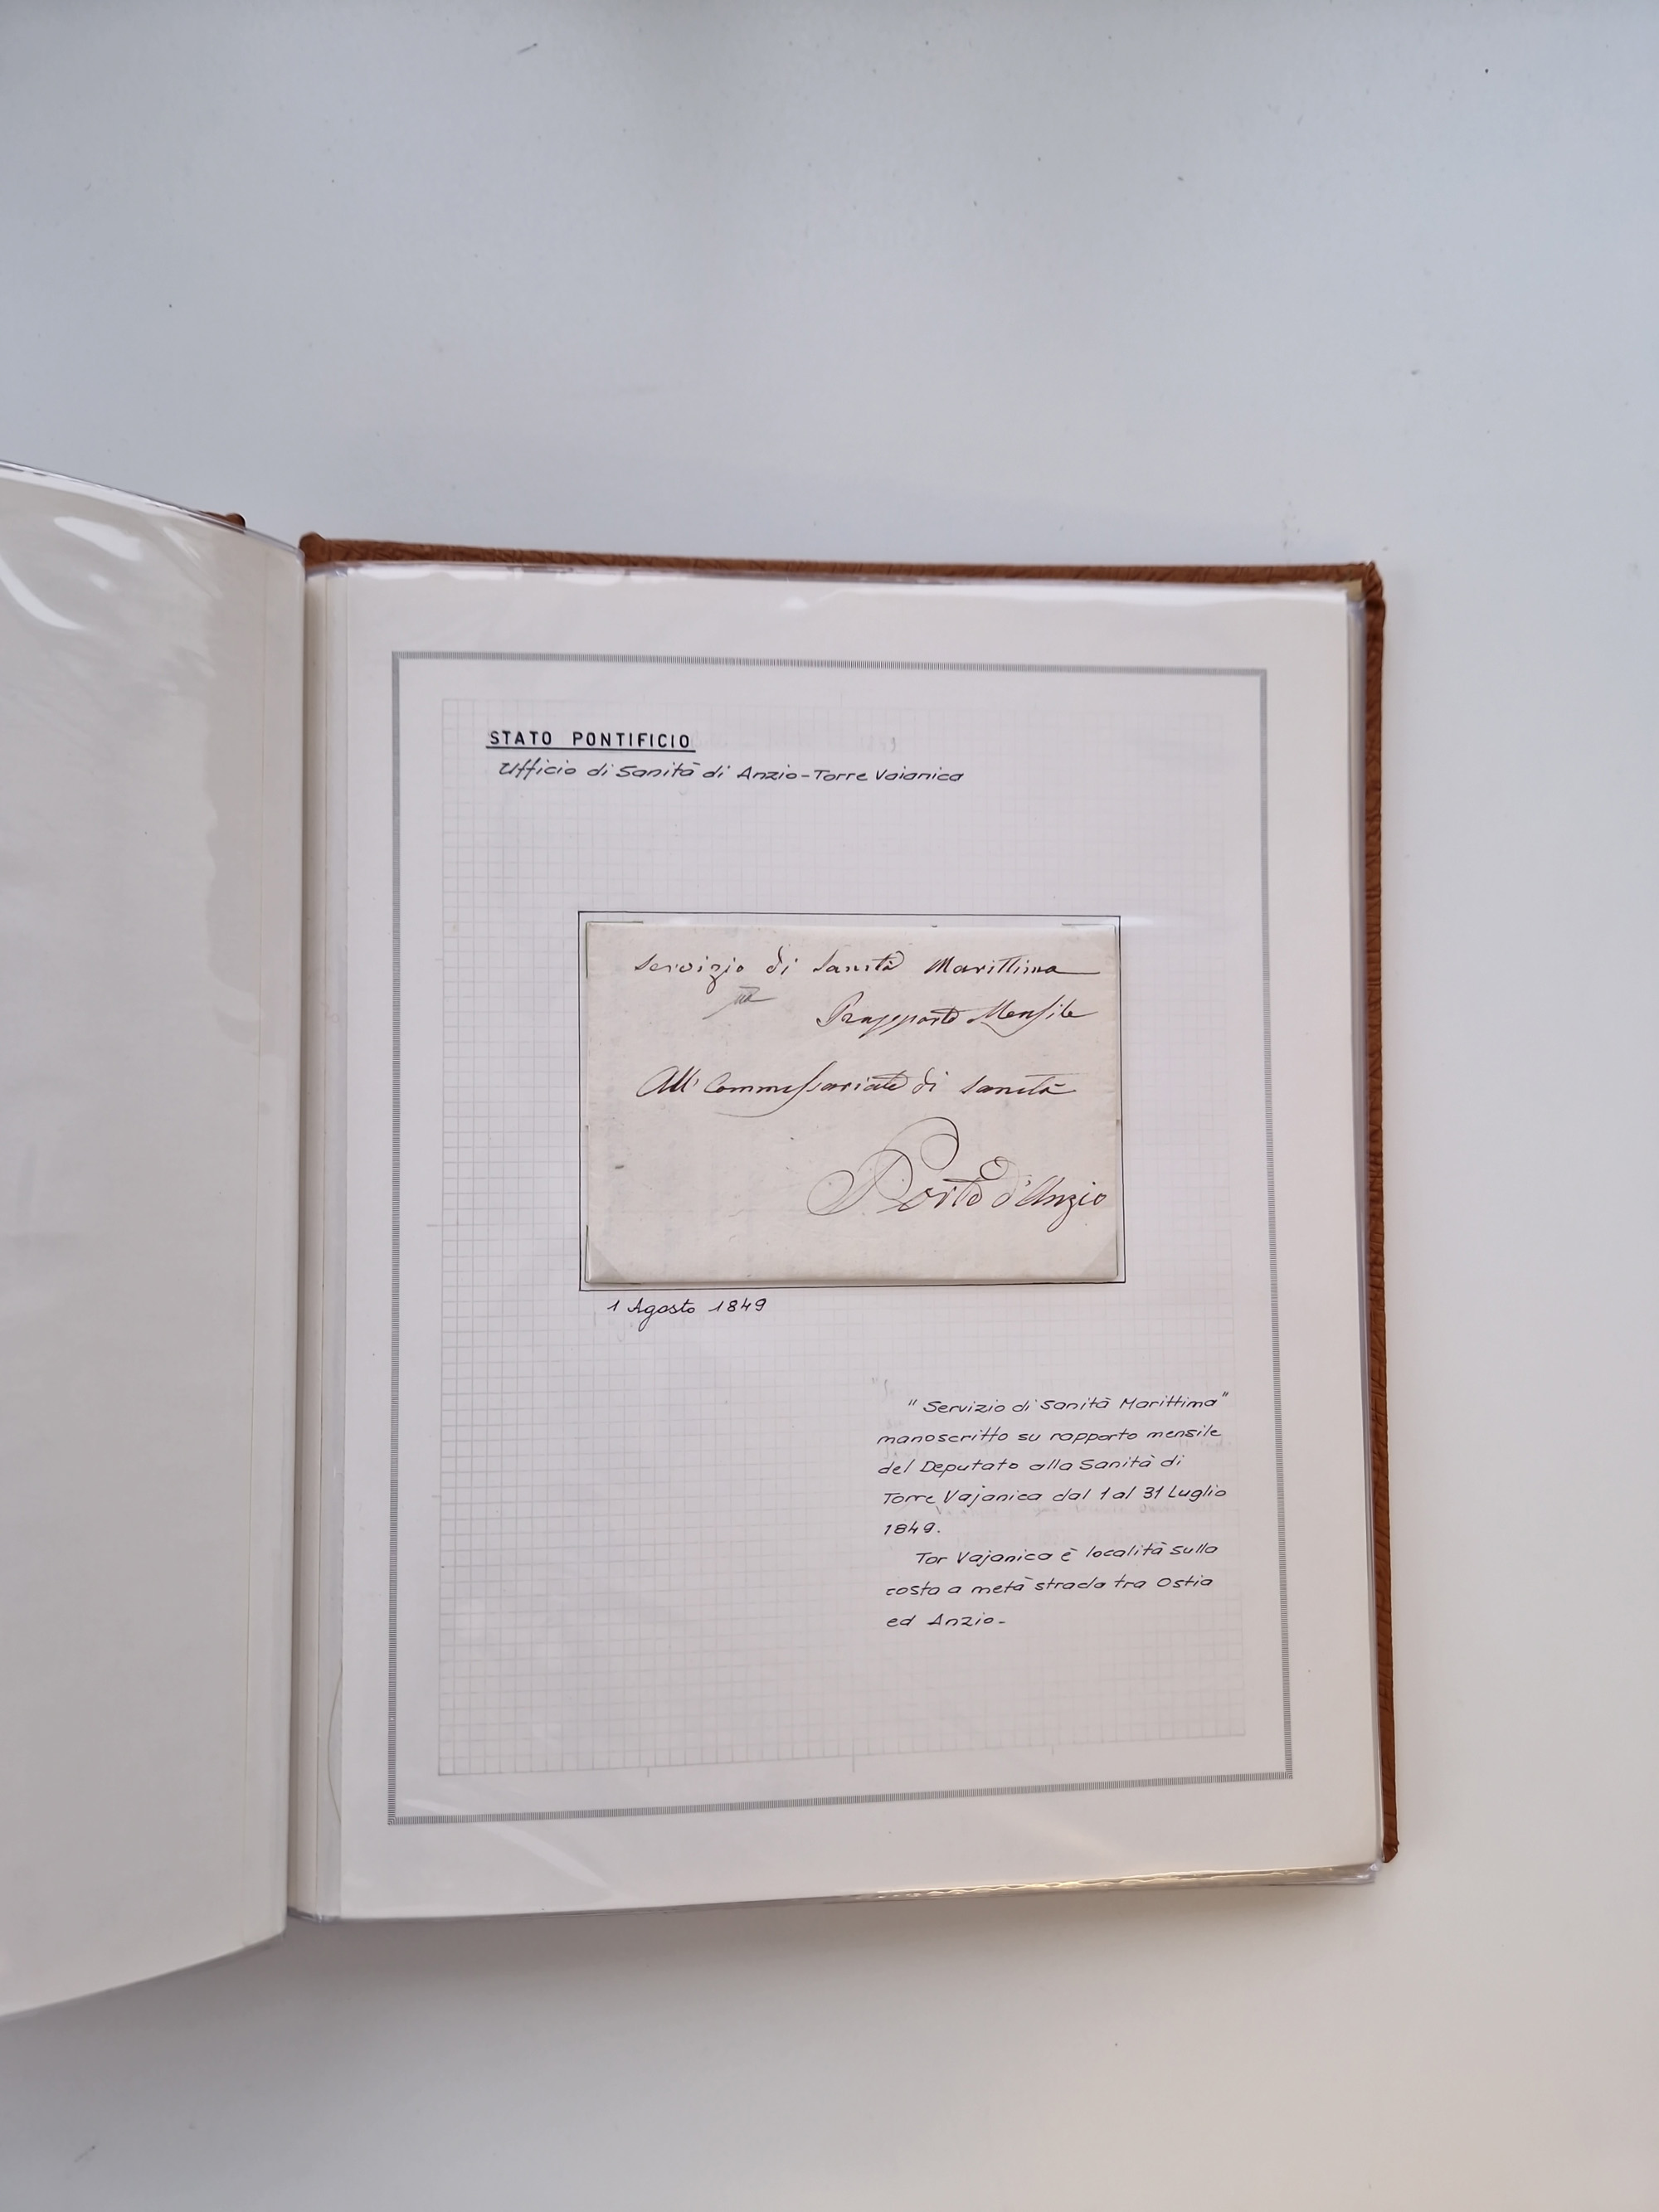 STATO PONTIFICIO
Ufficio di Sanità di Anzio-Torre Vaianica
Servizio di Sanità Marittima
Rapporto Mensile
All' Commissariato di Sanità
Porto d'Anzio
1 Agosto 1849
"Servizio di Sanità Marittima"
manoscritto su rapporto mensile
del Deputato alla Sanità di
Torre Vajanica dal 1 al 31 Luglio
1849.
Tor Vajanica è località sulla
costa a metà strada tra Ostia
ed Anzio-